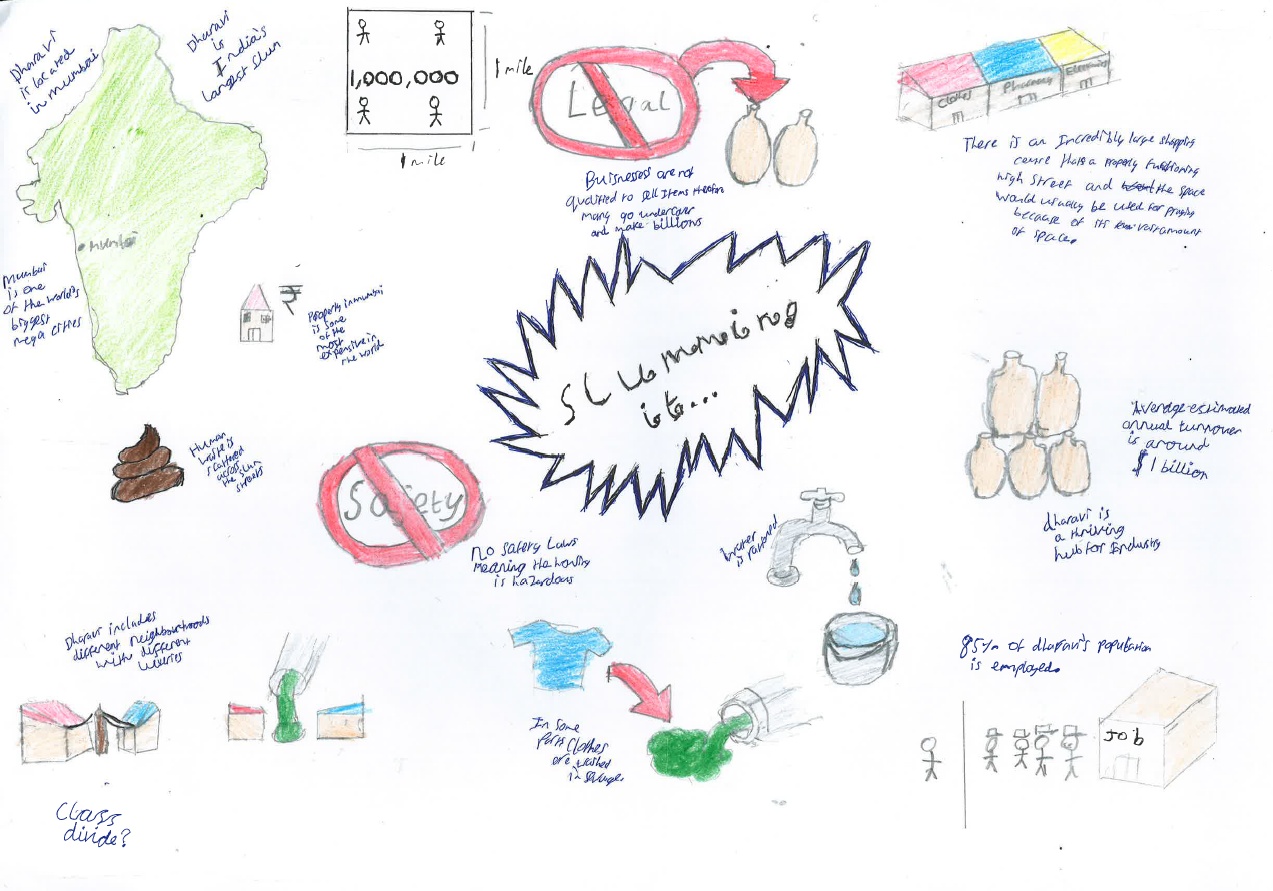 Dharavi
is located
in mumbai
Dharavi
is
India's
Largest Slum
1,000,000
1 mile
1 mile
Legal
Buisnesses are not
qualified to sell items therefore
many go undercover
and make billions
Clothes
Pharmacy
Electronics
There is an Incredibly large shopping
centre thats a properly functioning
high street and the space
would usually be used for
because of its vast amount
of space.
mumbai
Mumbai
is one
of the world's
biggest
mega cities
₹
Property in mumbai
is some
of the
most
expensive in
the world
SLUMMING
it...
Human
waste is
scattered
across
the slum
streets
Safety
No Safety Laws
meaning the housing
is hazardous
water
is rationed
Average estimated
annual turnover
is around
$1 billion
dharavi is
a thriving
hub for Industry
Dharavi includes
different neighbourhoods
with different
In some
parts clothes
are washed
in sewage
85% of dharavi's population
is employed.
Job
Class
divide?